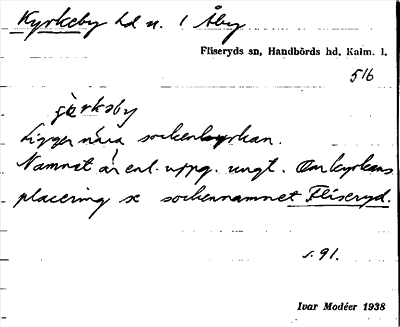 Kyrkeby hd n. 1 Åby
Fliseryds sn, Handbörds hd, Kalm. l.
516
çèrkəby
Ligger nära sockenkyrkan.
Namnet är enl. uppg. ungt. Om kyrkans
placering se sockennamnet Fliseryd.
s. 91.
Ivar Modéer 1938